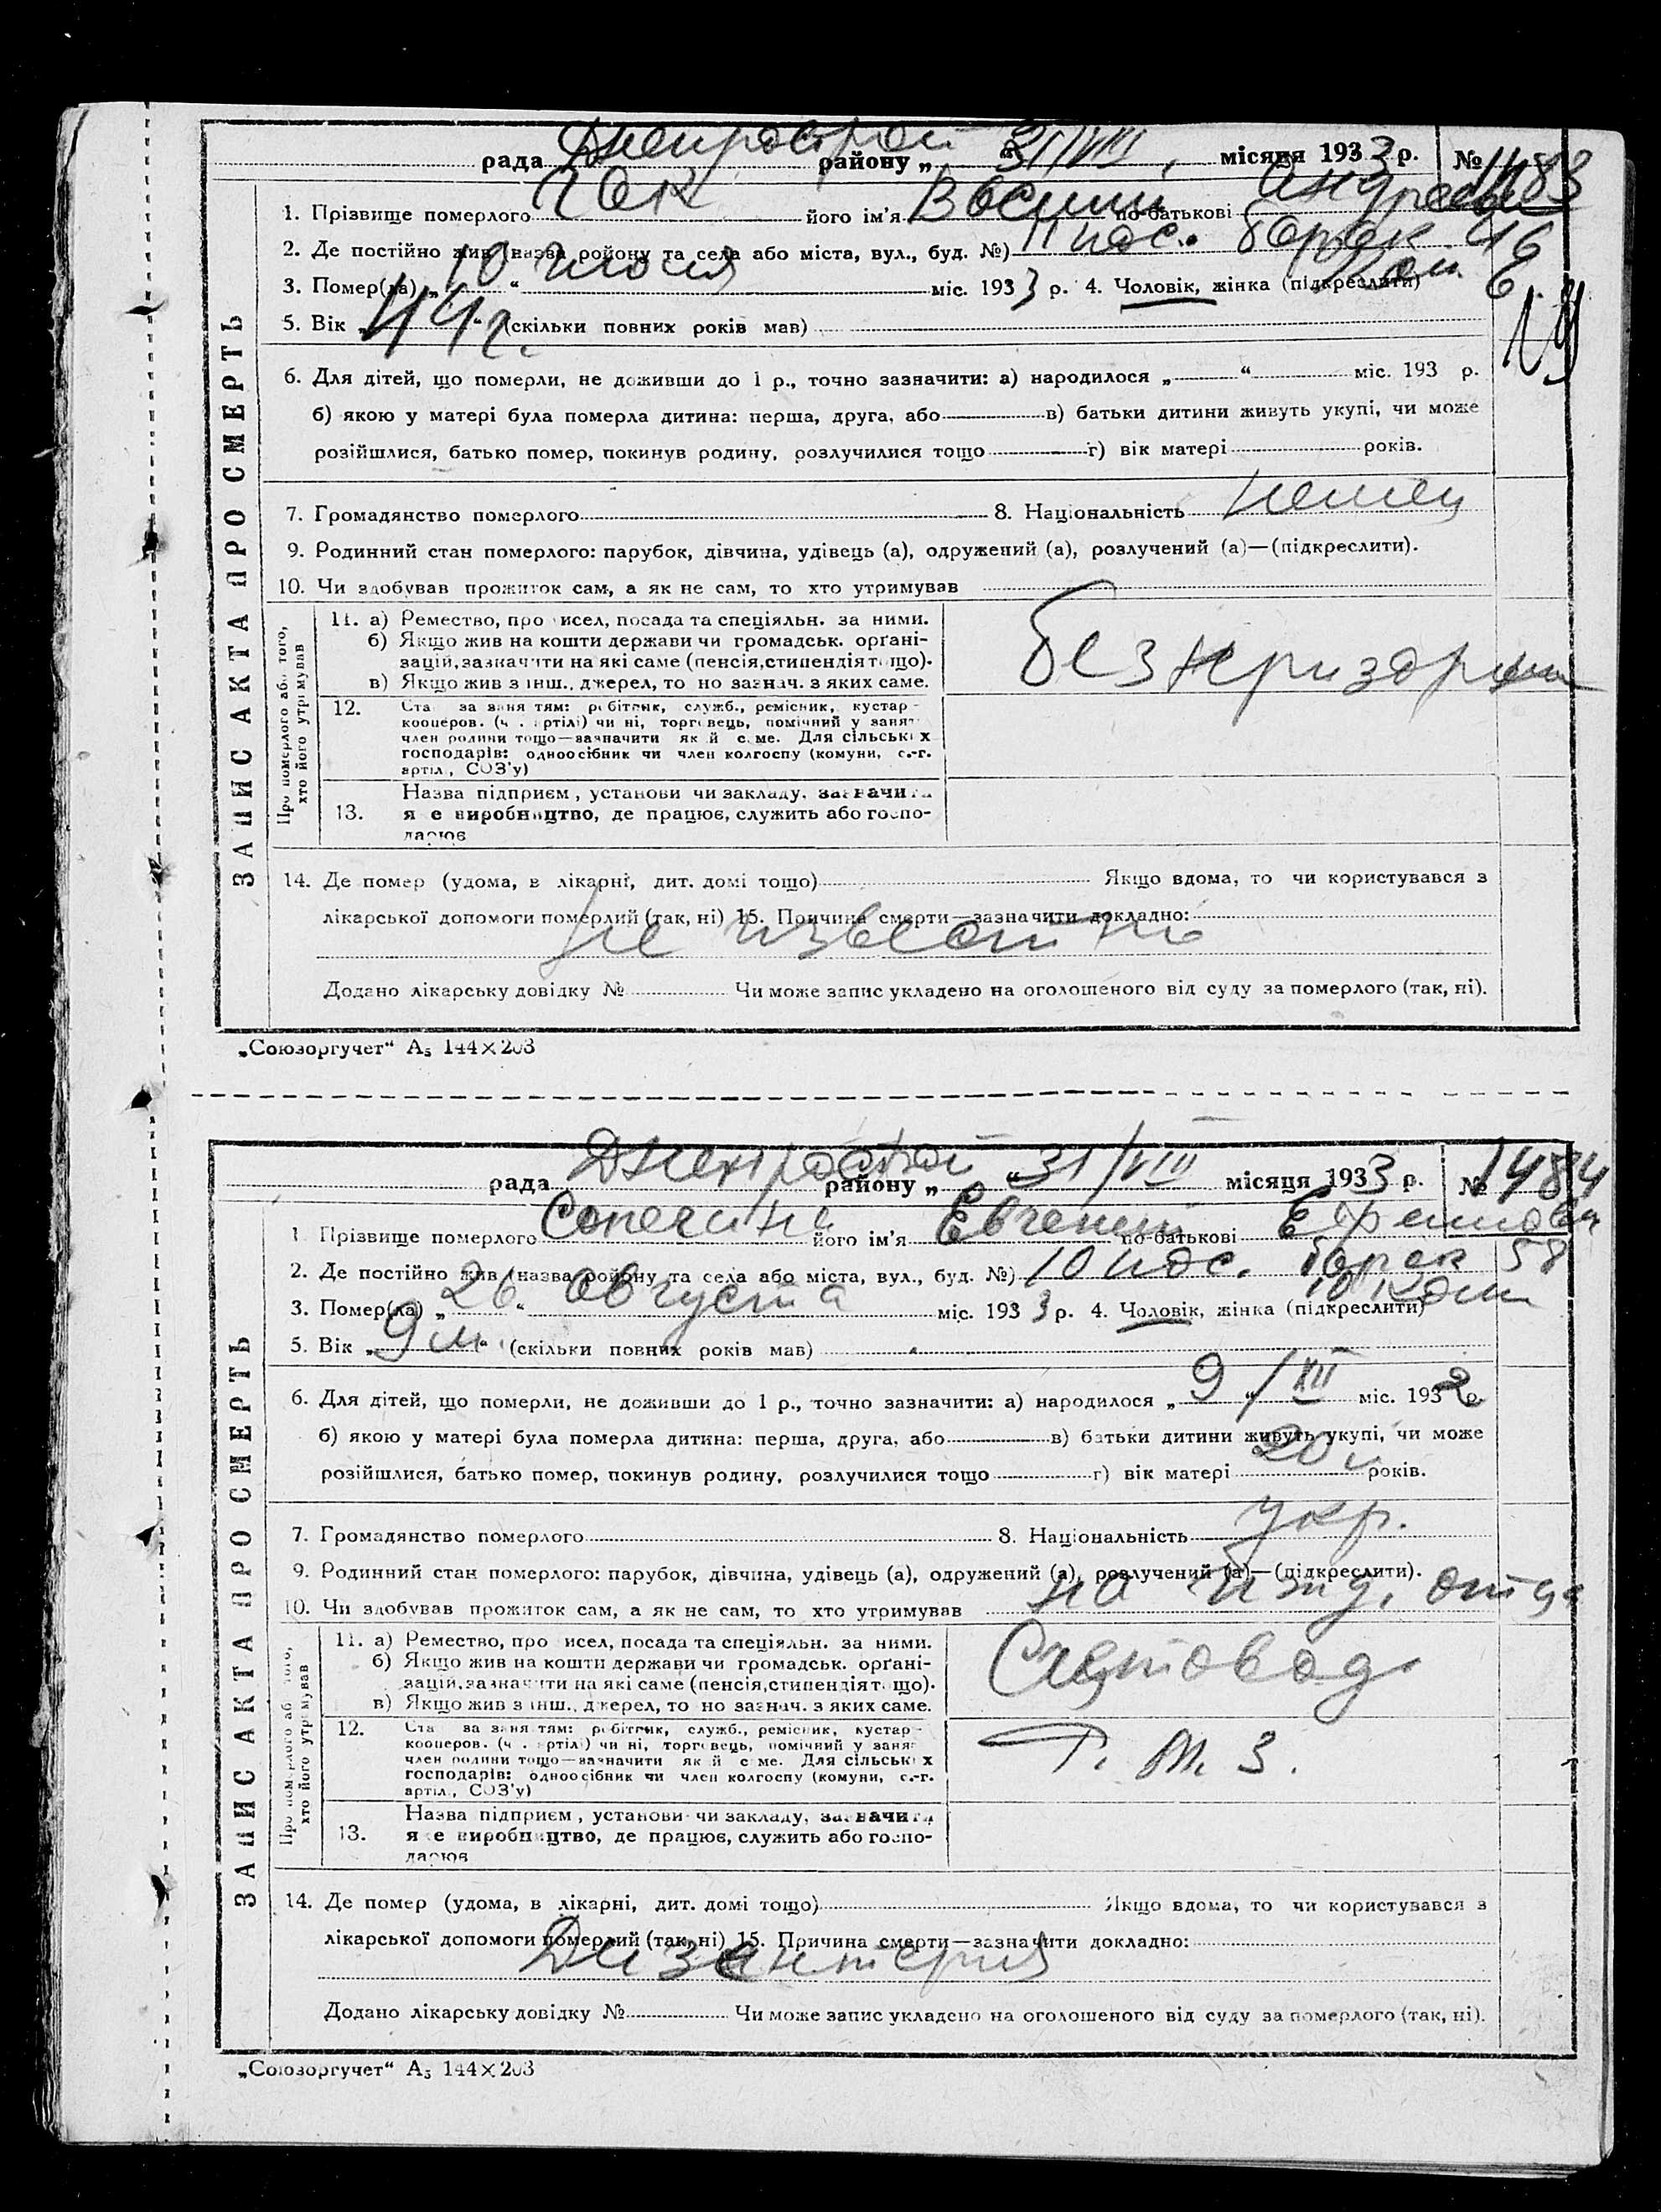 рада Днепрострой району „ “ 31/VIII місяця 1933 р. № 1483
1. Прізвище померлого Гек його ім'я по-батькові Андреев
2. Де постійно жив (назва району та села або міста, вул., буд. №) 11 пос. барак 46
3. Помер(ла) „10“ июля міс. 1933 р. 4. Чоловік, жінка (підкреслити)
5. Вік „44 г.“ (скільки повних років мав)
6. Для дітей, що померли, не доживши до 1 р., точно зазначити: а) народилося „ “ міс. 193 р.
б) якою у матері була померла дитина: перша, друга, або в) батьки дитини живуть укупі, чи може
розійшлися, батько помер, покинув родину, розлучилися тощо г) вік матері років.
7. Громадянство померлого 8. Національність немец
9. Родинний стан померлого: парубок, дівчина, удівець (а), одружений (а), розлучений (а)—(підкреслити).
10. Чи здобував прожиток сам, а як не сам, то хто утримував
11. а) Ремество, промисел, посада та спеціяльн. за ними.
б) Якщо жив на кошти держави чи громадськ. орґані-
зацій, зазначити на які саме (пенсія, стипендія тощо).
в) Якщо жив з інш. джерел, то но зазнач. з яких саме.
12. Ста за заня тям: робітник, служб., ремісник, кустар -
кооперов. (ч . артілі) чи ні, торговець, помічний у занят
член родини тощо—зазначити як й саме. Для сільських
господарів: одноосібник чи член колгоспу (комуни, с.-г.
артіл., СОЗ'у)
Назва підприєм, установи чи закладу, зазначити
13. яке виробництво, де працює, служить або госпо-
дарює
14. Де помер (удома, в лікарні, дит. домі тощо) Якщо вдома, то чи користувався з
лікарської допомоги померлий (так, ні) 15. Причина смерти—зазначити докладно:
не известно
Додано лікарську довідку № Чи може запис укладено на оголошеного від суду за померлого (так, ні).
ЗАПИС АКТА ПРО СМЕРТЬ
Про померлого або того,
хто його утримував
„Союзоргучет“ А₅ 144×203
рада Днепрострой району „ “ 31/VIII місяця 1933 р. № 1484
1. Прізвище померлого його ім'я Евгений по-батькові Ефремович
2. Де постійно жив (назва району та села або міста, вул., буд. №) 10 пос. барак 58
10 ком
3. Помер(ла) „26“ Августа міс. 1933 р. 4. Чоловік, жінка (підкреслити)
5. Вік „9 м“ (скільки повних років мав)
6. Для дітей, що померли, не доживши до 1 р., точно зазначити: а) народилося „9“ / XII міс. 1932 р.
б) якою у матері була померла дитина: перша, друга, або в) батьки дитини живуть укупі, чи може
розійшлися, батько помер, покинув родину, розлучилися тощо г) вік матері 20 років.
7. Громадянство померлого 8. Національність укр.
9. Родинний стан померлого: парубок, дівчина, удівець (а), одружений (а), розлучений (а)—(підкреслити).
10. Чи здобував прожиток сам, а як не сам, то хто утримував на ижд. отца
11. а) Ремество, промисел, посада та спеціяльн. за ними. Счетовод
б) Якщо жив на кошти держави чи громадськ. орґані-
зацій, зазначити на які саме (пенсія, стипендія тощо).
в) Якщо жив з інш. джерел, то но зазнач. з яких саме.
12. Ста за заня тям: робітник, служб., ремісник, кустар - Р. М. З.
кооперов. (ч . артілі) чи ні, торговець, помічний у занят
член родини тощо—зазначити як й саме. Для сільських
господарів: одноосібник чи член колгоспу (комуни, с.-г.
артіл., СОЗ'у)
Назва підприєм, установи чи закладу, зазначити
13. яке виробництво, де працює, служить або госпо-
дарює
14. Де помер (удома, в лікарні, дит. домі тощо) Якщо вдома, то чи користувався з
лікарської допомоги померлий (так, ні) 15. Причина смерти—зазначити докладно:
Дизентерия
Додано лікарську довідку № Чи може запис укладено на оголошеного від суду за померлого (так, ні).
ЗАПИС АКТА ПРО СМЕРТЬ
Про померлого або того,
хто його утримував
„Союзоргучет“ А₅ 144×203